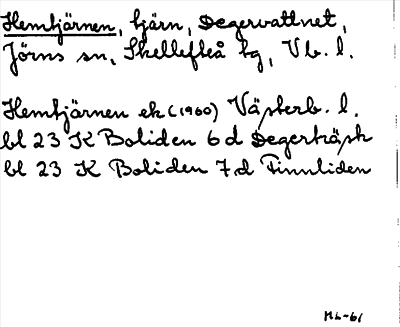 Hemtjärnen, tjärn, Degervattnet,
Jörns sn, Skellefteå tg, Vb. l.
Hemtjärnen ek (1960) Västerb. l.
bl 23 K Boliden 6 d Degerträsk
bl 23 K Boliden 7 d Finnliden
Mb-61